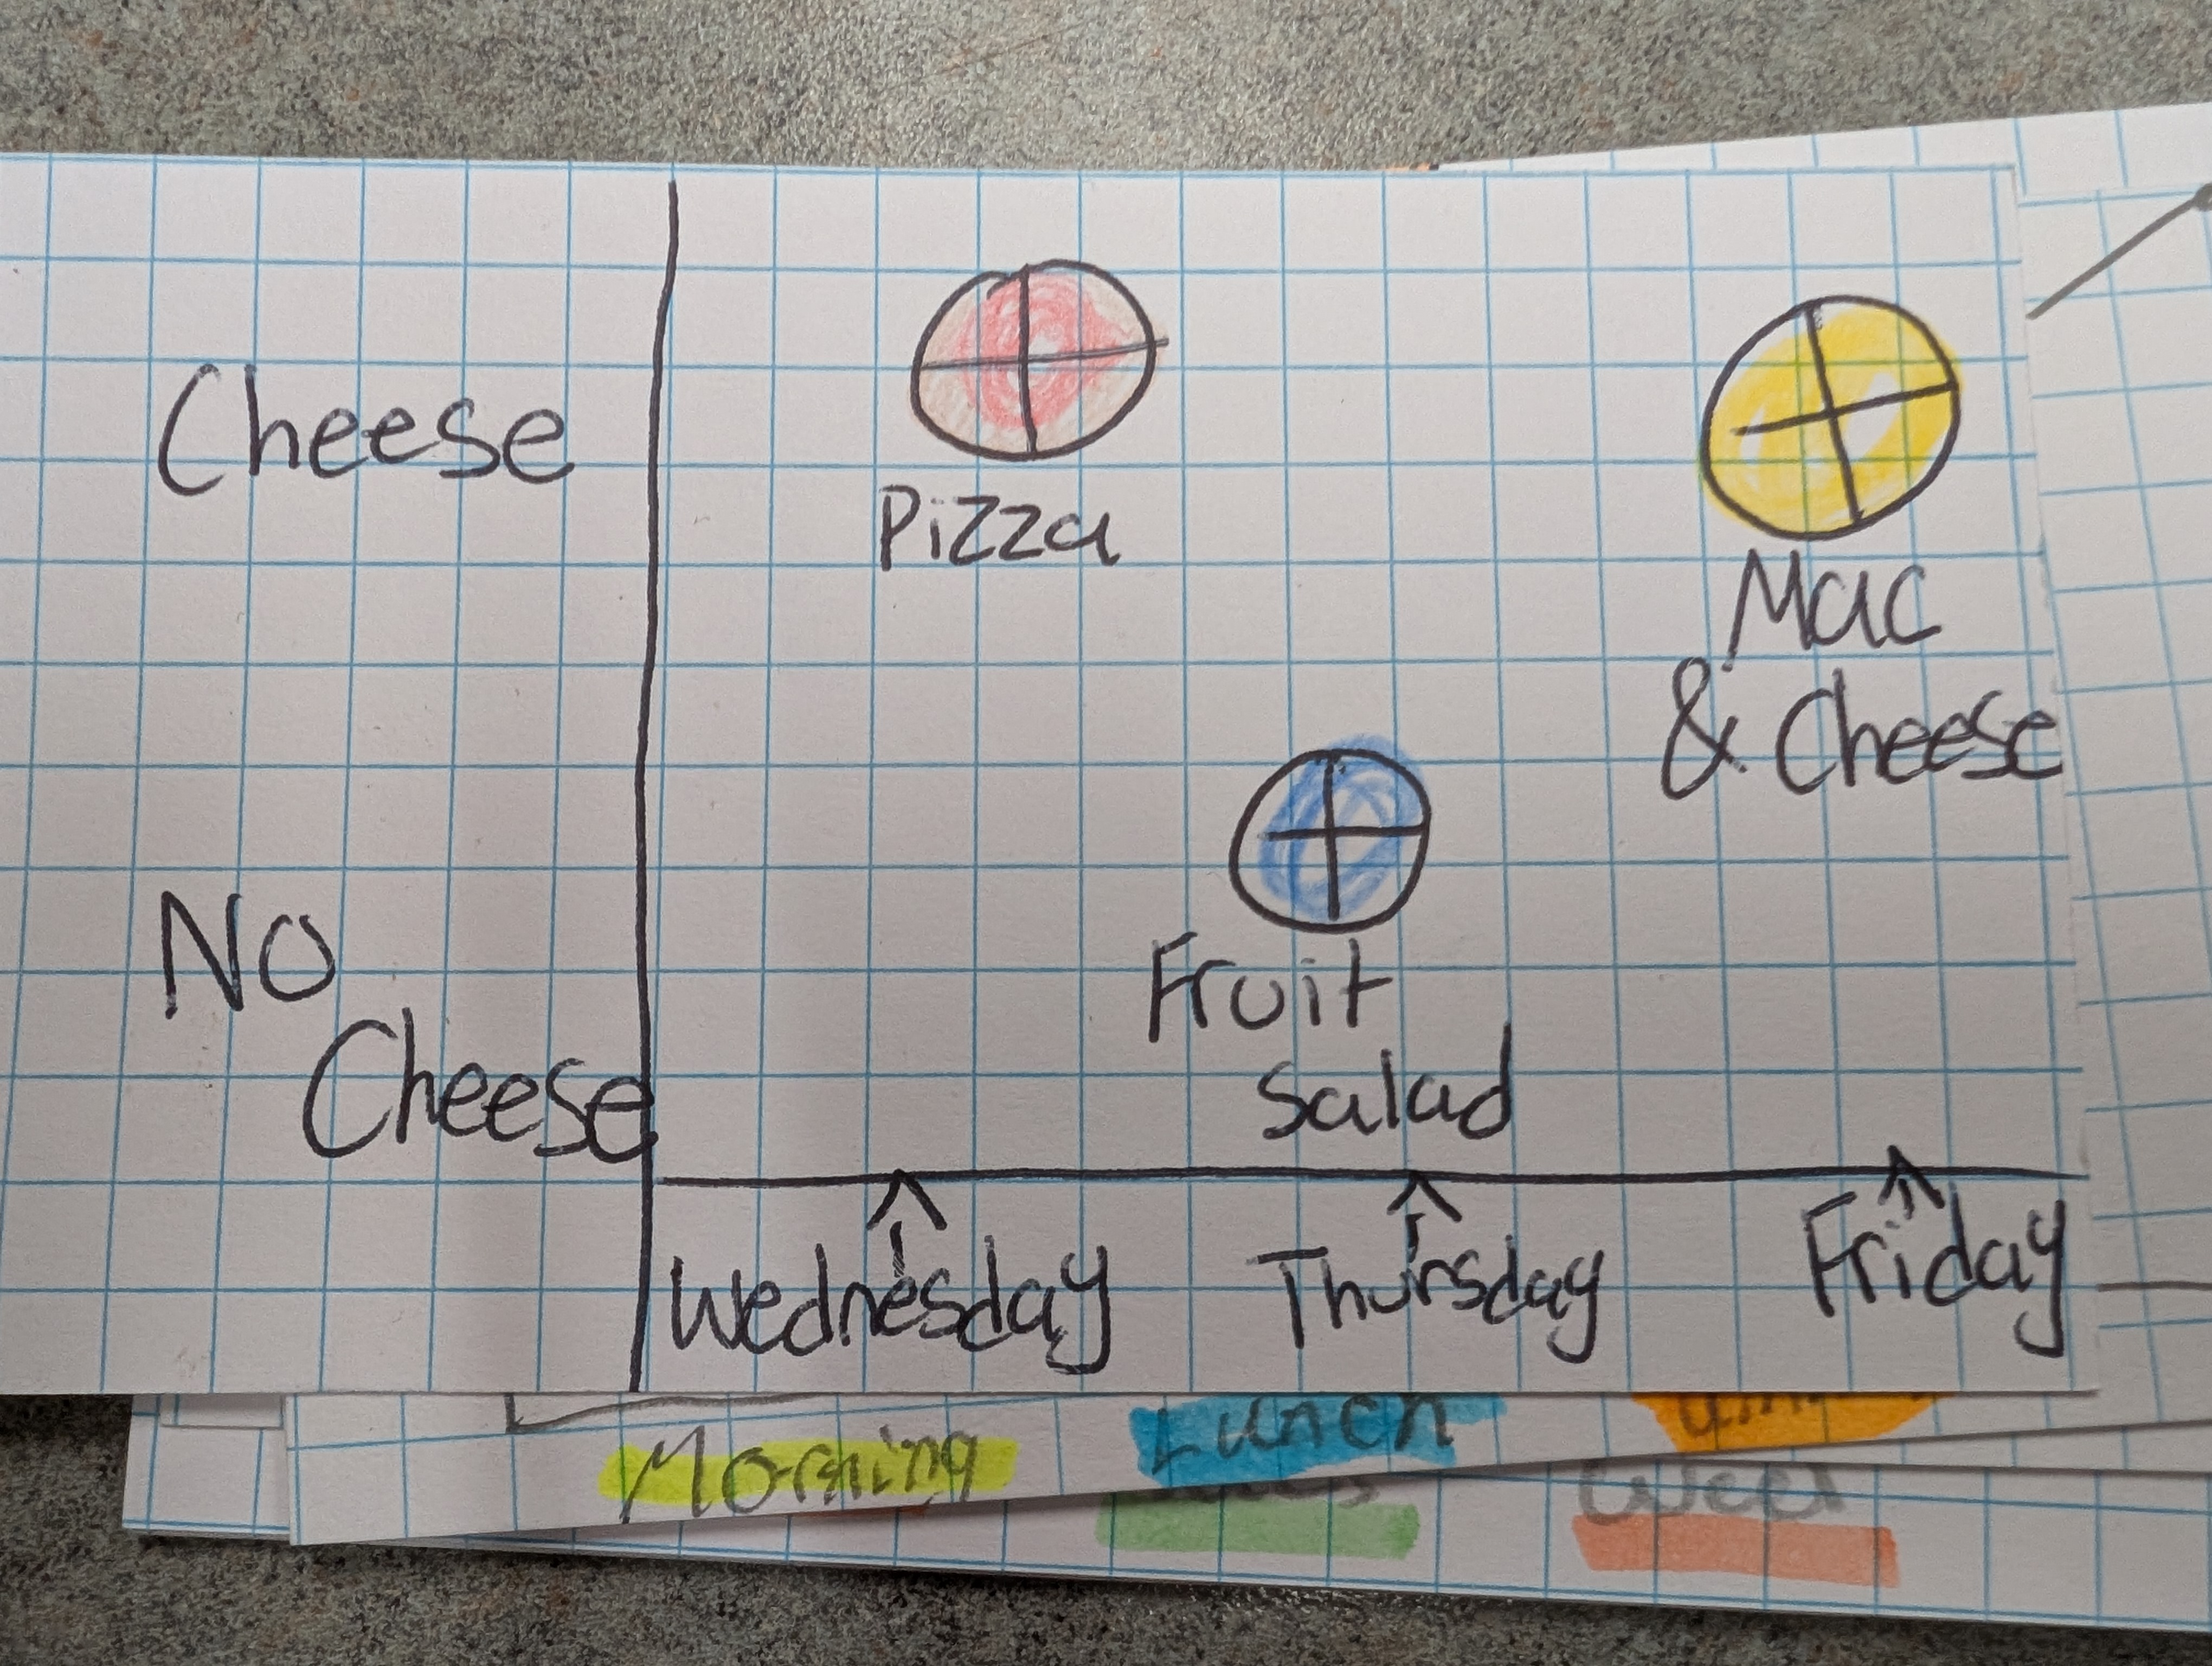 Cheese
Pizza
Mac
& Cheese
No
Cheese
Fruit
Salad
Wednesday
Thursday
Friday
Morning
Lunch